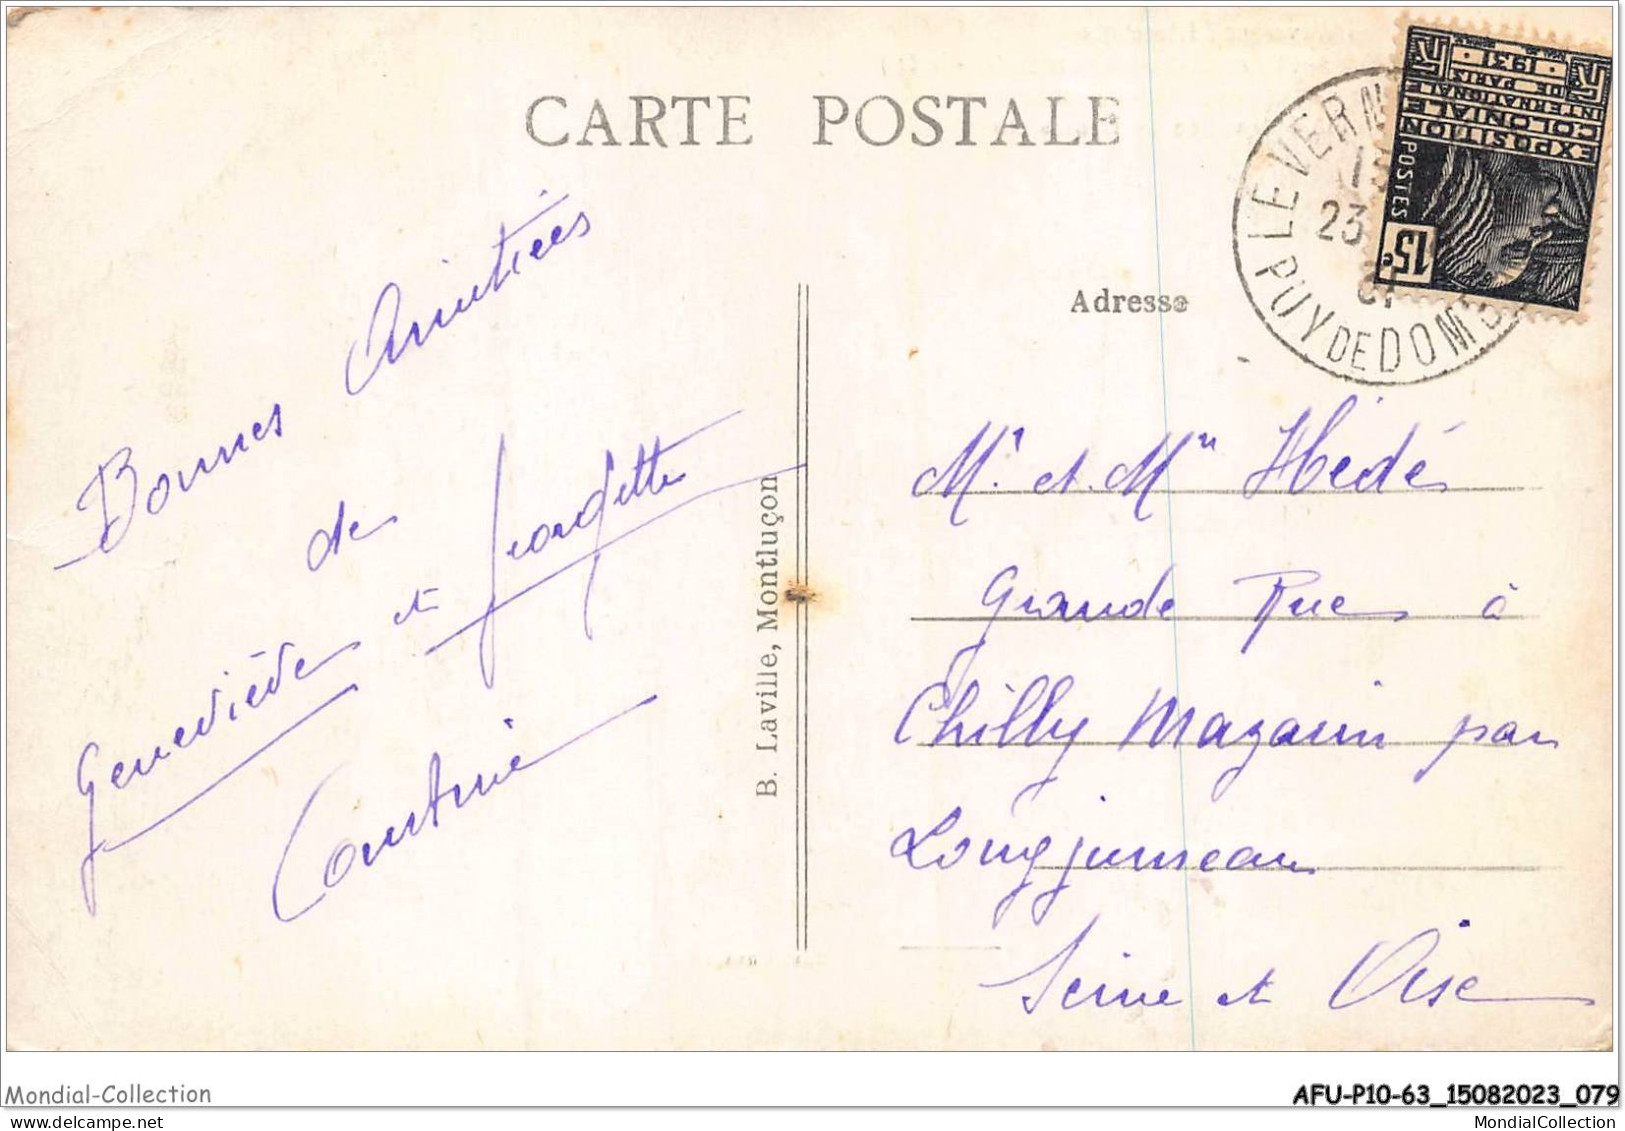 CARTE POSTALE
EXPOSITION
COLONIALE
INTERNATIONALE
DE PARIS
1931
POSTES
15c
LE VERN
23
PUY DE DOME
Bonnes Amitiés
de
Geneviève et Georgette
Adresse
Mr. et Mme
Grande Rue à
Chilly Mazarin par
Longjumeau
Seine et Oise
B. Laville, Montluçon
Mondial-Collection
AFU-P10-63_15082023_079
www.delcampe.net
MondialCollection